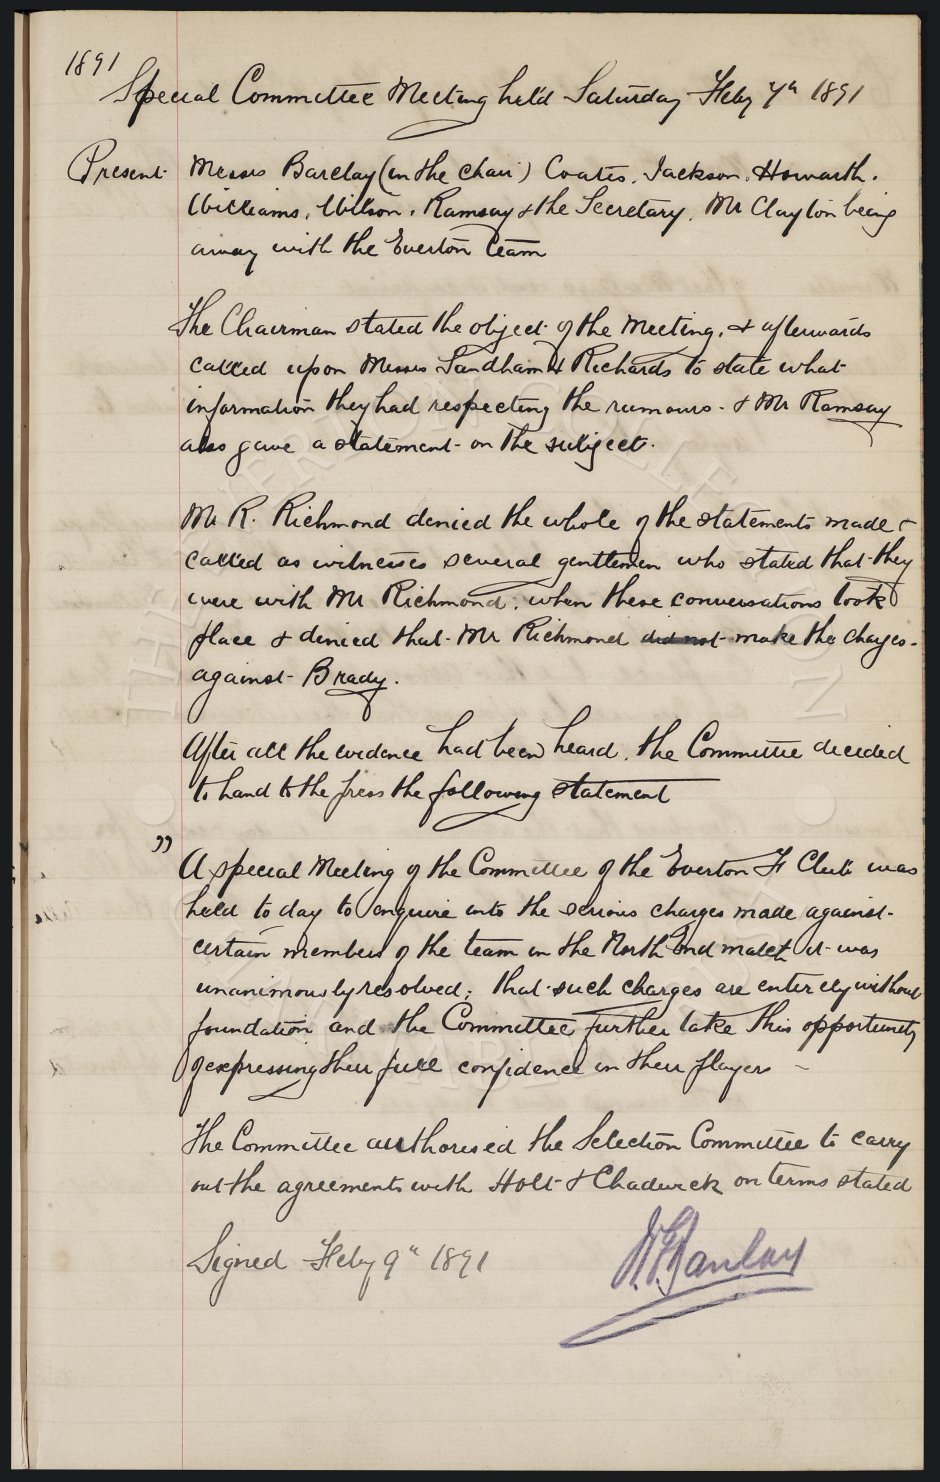 1891
Special Committee Meeting held Saturday Feby 7th 1891
Present Messrs Barclay (in the chair) Coates, Jackson, Howarth.
Williams, Wilson, Ramsay & the Secretary, Mr Clayton being
away with the Everton Team
The Chairman stated the object of the Meeting, & afterwards
called upon Messrs Sandham & Richards to state what
information they had respecting the rumours - & Mr Ramsay
also gave a statement on the subject.
Mr R. Richmond denied the whole of the statements made &
called as witnesses several gentlemen who stated that they
were with Mr Richmond, when these conversations took
place & denied that Mr Richmond did not make the charges
against Brady.
After all the evidence had been heard, the Committee decided
to hand to the press the following statement
" A special Meeting of the Committee of the Everton F Club was
held to day to enquire into the serious charges made against
certain members of the team in the North End match it was
unanimously resolved; that such charges are entirely without
foundation and the Committee further take this opportunity
of expressing their full confidence in their players -
The Committee authorised the Selection Committee to carry
out the agreements with Holt & Chadwick on terms stated
Signed Feby 9th 1891
THE EVERTON COLLECTION